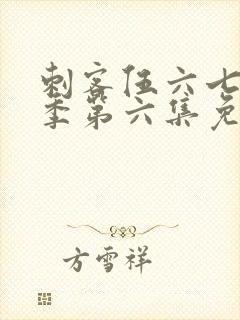 刺客伍六七
季第六集免
方雪祥